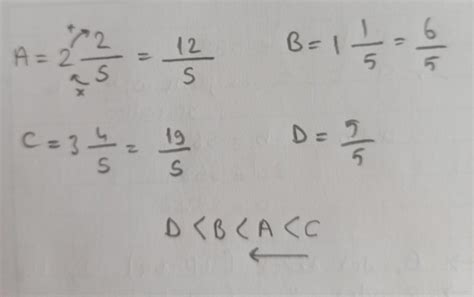 A = 2 2/5 = 12/5   B = 1 1/5 = 6/5
+
x
C = 3 4/5 = 19/5   D = 5/5
D < B < A < C
←